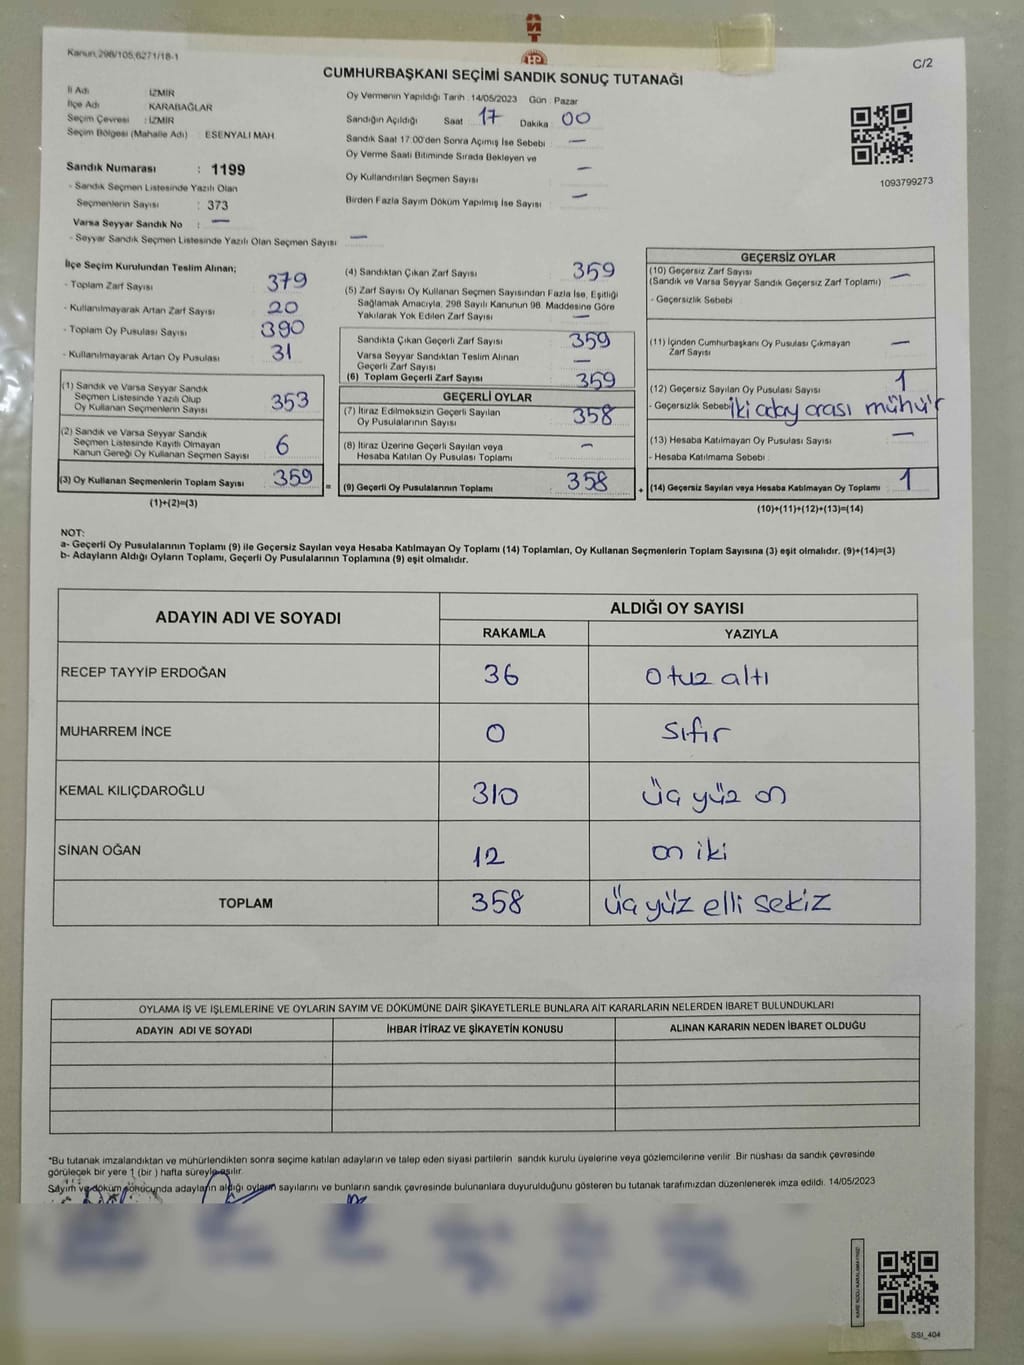 Kanun,298/105,6271/18-1
C/2
CUMHURBAŞKANI SEÇİMİ SANDIK SONUÇ TUTANAĞI
İl Adı : İZMİR
İlçe Adı : KARABAĞLAR
Seçim Çevresi : İZMİR
Seçim Bölgesi (Mahalle Adı) : ESENYALI MAH
Sandık Numarası : 1199
- Sandık Seçmen Listesinde Yazılı Olan
Seçmenlerin Sayısı : 373
Varsa Seyyar Sandık No : —
- Seyyar Sandık Seçmen Listesinde Yazılı Olan Seçmen Sayısı : —
Oy Vermenin Yapıldığı Tarih : 14/05/2023 Gün : Pazar
Sandığın Açıldığı Saat 17 Dakika 00
Sandık Saat 17:00'den Sonra Açımış İse Sebebi —
Oy Verme Saati Bitiminde Sırada Bekleyen ve
Oy Kullandırılan Seçmen Sayısı —
Birden Fazla Sayım Döküm Yapılmış İse Sayısı —
1093799273
İlçe Seçim Kurulundan Teslim Alınan;
- Toplam Zarf Sayısı : 379
- Kullanılmayarak Artan Zarf Sayısı : 20
- Toplam Oy Pusulası Sayısı : 390
- Kullanılmayarak Artan Oy Pusulası : 31
(1) Sandık ve Varsa Seyyar Sandık
Seçmen Listesinde Yazılı Olup
Oy Kullanan Seçmenlerin Sayısı : 353
(2) Sandık ve Varsa Seyyar Sandık
Seçmen Listesinde Kayıtlı Olmayan
Kanun Gereği Oy Kullanan Seçmen Sayısı : 6
(3) Oy Kullanan Seçmenlerin Toplam Sayısı : 359
(1)+(2)=(3)
(4) Sandıktan Çıkan Zarf Sayısı : 359
(5) Zarf Sayısı Oy Kullanan Seçmen Sayısından Fazla İse, Eşitliği
Sağlamak Amacıyla, 298 Sayılı Kanunun 98. Maddesine Göre
Yakılarak Yok Edilen Zarf Sayısı : —
Sandıkta Çıkan Geçerli Zarf Sayısı : 359
Varsa Seyyar Sandıktan Teslim Alınan
Geçerli Zarf Sayısı : —
(6) Toplam Geçerli Zarf Sayısı : 359
GEÇERLİ OYLAR
(7) İtiraz Edilmeksizin Geçerli Sayılan
Oy Pusulalarının Sayısı : 358
(8) İtiraz Üzerine Geçerli Sayılan veya
Hesaba Katılan Oy Pusulası Toplamı : —
= (9) Geçerli Oy Pusulalarının Toplamı : 358
GEÇERSİZ OYLAR
(10) Geçersiz Zarf Sayısı
(Sandık ve Varsa Seyyar Sandık Geçersiz Zarf Toplamı) : —
- Geçersizlik Sebebi :
(11) İçinden Cumhurbaşkanı Oy Pusulası Çıkmayan
Zarf Sayısı : —
(12) Geçersiz Sayılan Oy Pusulası Sayısı : 1
- Geçersizlik Sebebi : iki aday arası mühür
(13) Hesaba Katılmayan Oy Pusulası Sayısı : —
- Hesaba Katılmama Sebebi :
+ (14) Geçersiz Sayılan veya Hesaba Katılmayan Oy Toplamı : 1
(10)+(11)+(12)+(13)=(14)
NOT:
a- Geçerli Oy Pusulalarının Toplamı (9) ile Geçersiz Sayılan veya Hesaba Katılmayan Oy Toplamı (14) Toplamları, Oy Kullanan Seçmenlerin Toplam Sayısına (3) eşit olmalıdır. (9)+(14)=(3)
b- Adayların Aldığı Oyların Toplamı, Geçerli Oy Pusulalarının Toplamına (9) eşit olmalıdır.
ADAYIN ADI VE SOYADI ALDIĞI OY SAYISI
RAKAMLA YAZIYLA
RECEP TAYYİP ERDOĞAN 36 Otuz altı
MUHARREM İNCE 0 sıfır
KEMAL KILIÇDAROĞLU 310 üç yüz on
SİNAN OĞAN 12 on iki
TOPLAM 358 üç yüz elli sekiz
OYLAMA İŞ VE İŞLEMLERİNE VE OYLARIN SAYIM VE DÖKÜMÜNE DAİR ŞİKAYETLERLE BUNLARA AİT KARARLARIN NELERDEN İBARET BULUNDUKLARI
ADAYIN ADI VE SOYADI İHBAR İTİRAZ VE ŞİKAYETİN KONUSU ALINAN KARARIN NEDEN İBARET OLDUĞU
*Bu tutanak imzalandıktan ve mühürlendikten sonra seçime katılan adayların ve talep eden siyasi partilerin sandık kurulu üyelerine veya gözlemcilerine verilir. Bir nüshası da sandık çevresinde
görülecek bir yere 1 (bir ) hafta süreyle asılır.
Sayım ve döküm sonucunda adayların aldığı oyların sayılarını ve bunların sandık çevresinde bulunanlara duyurulduğunu gösteren bu tutanak tarafımızdan düzenlenerek imza edildi. 14/05/2023
SSİ_404